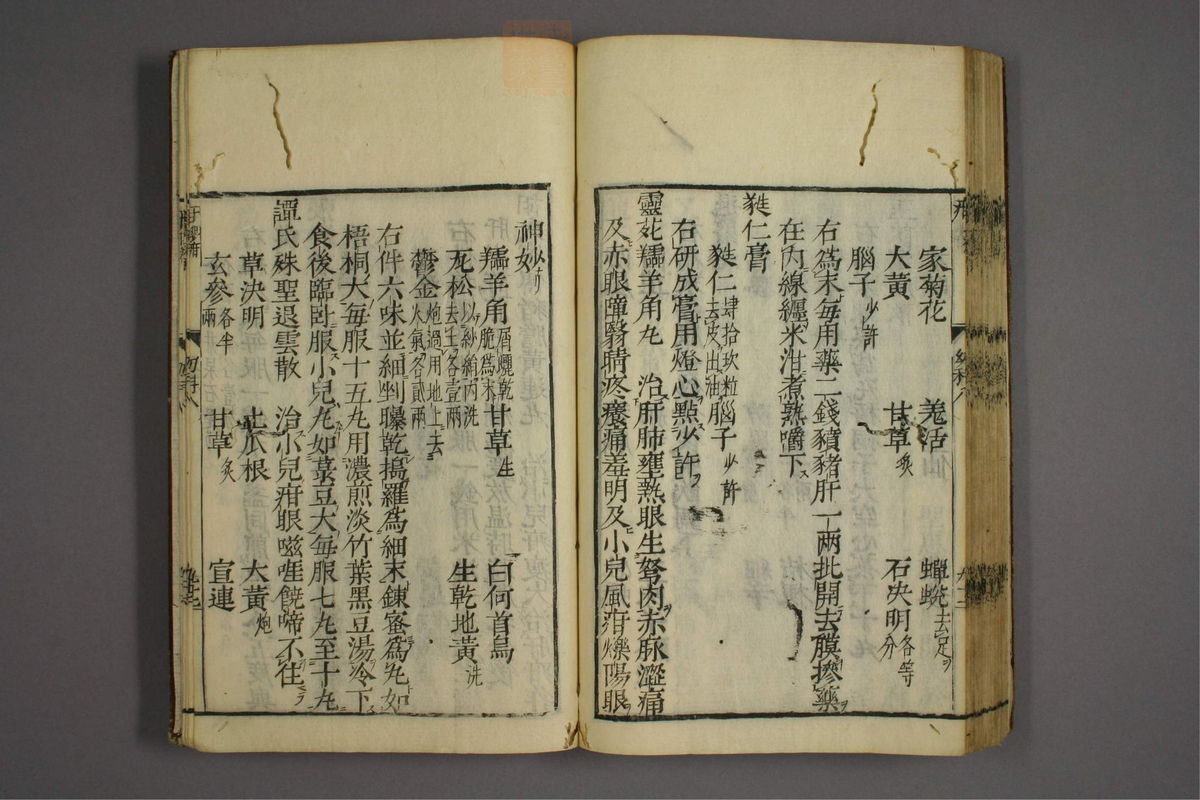 家菊花 羗活 蟬蛻去足
大黄 甘草炙 石决明各等分
腦子少許
右爲末每用藥二錢豬肝一兩批開去膜摻藥
在内線纒米泔煮熟嚼下
蕤仁膏
蕤仁肆拾玖粒去皮出油 腦子少許
右研成膏用燈心點少許
靈圥羺羊角丸 治肝肺壅熱眼生努肉赤脉澀痛
及赤眼障翳睛疼癢痛羞明及小兒風疳爍陽眼
神妙
羺羊角屑曬乾脆爲末 甘草生 白何首烏
五松以紗絹内洗去土各壹兩 生乾地黄洗
鬱金炮過用地上去火氣各貳兩
右件六味並細剉曝乾搗羅爲細末鍊蜜爲丸如
梧桐大每服十五丸用濃煎淡竹葉黑豆湯冷下
食後臨臥服小兒丸如菉豆大每服七丸至十丸
譚氏殊聖退雲散 治小兒疳眼嗞啀饒啼不住
草決明 土瓜根 大黄炮
玄參各半兩 甘草炙 宣連